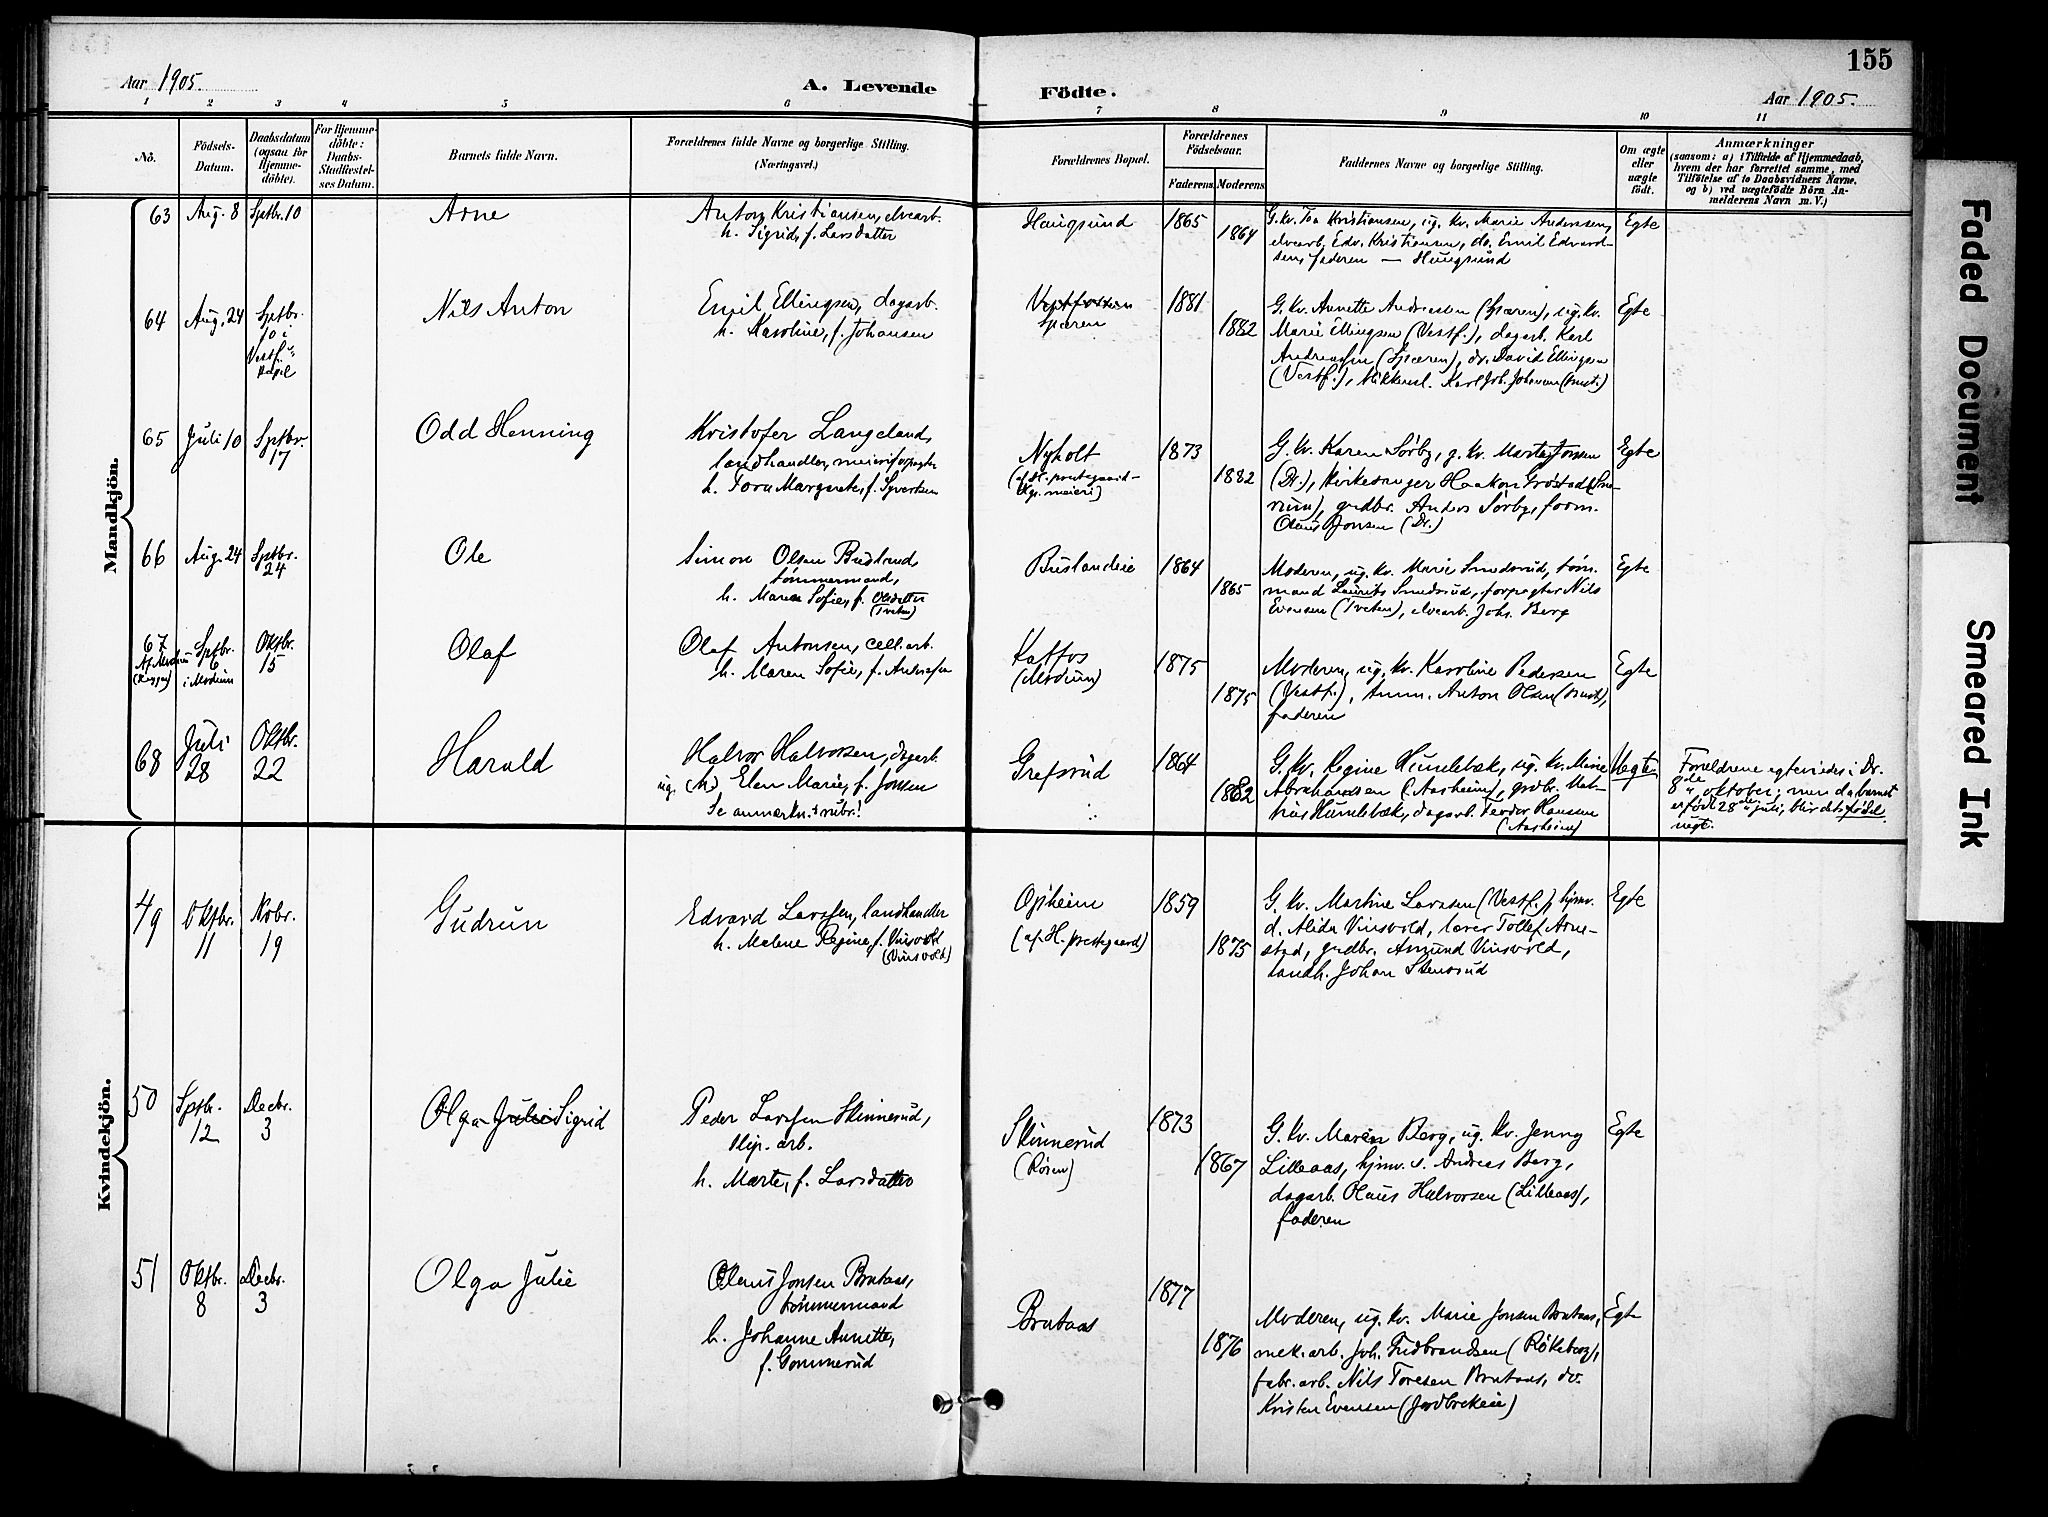 155
Aar 1905.
A. Levende Födte.
Aar 1905.
1 2 3 4 5 6 7 8 9 10 11
No.
Födsels-
Datum.
Daabsdatum
(ogsaa for
Hjemme-
döbte).
For Hjemme-
döbte:
Daabs-
Stadfæstel-
ses Datum.
Barnets fulde Navn.
Forældrenes fulde Navne og borgerlige Stilling.
(Næringsvei.)
Forældrenes Bopæl.
Forældrenes
Födselsaar.
Faderens. Moderens.
Faddernes Navne og borgerlige Stilling.
Om ægte
eller
uægte
födt.
Anmærkninger
(saasom: a) i Tilfælde af Hjemmedaab,
hvem der har forrettet samme, med
Tilföielse af to Daabsvidners Navne,
og b) ved uægtefödte Börn An-
melderens Navn m. V.)
Mandkjön.
63 Aug. 8 Sptbr. 10
Arne
Anton Kristiansen, elvearb.
h. Sigrid, f. Larsdatter
Haugsund
1865
1864
G. kv. Tea Kristiansen, ug. kv. Marie Anderssen,
elvearb. Edv. Kristiansen, do. Emil Edvard-
sen, faderen — Haugsund
Egte
64 Aug. 24 Sptbr.
10 i
Vestf.
kapel
Nils Anton
Emil Ellingsen, dagarb.
h. Karoline, f. Johansen
Vestfossen
Spæren
1881
1882
G. kv. Annette Andreassen (Spæren), ug. kv.
Marie Ellingsen (Vestf.), dagarb. Karl
Andreassen (Spæren), do. David Ellingsen
(Vestf.), Karl Joh. Johansen
Egte
65 Juli 10 Sptbr.
17
Odd Henning
Kristofer Langeland,
landhandler, meieriforpagter
h. Tora Margrete, f. Syvertsen
Nyholt
(af H. prestegaard-
meieri)
1873
1882
G. kv. Karen Sørby, g. kv. Marta Jonsen
(Dr.), kirkesanger Haakon
gaardbr. Anders Sørby, form.
Olaus Jonsen (Dr.)
Egte
66 Aug. 24 Sptbr.
24
Ole
Simon Olsen Busland,
tømmermand,
h. Maren Sofie, f. Olsdatter
(Tveten)
Buslandeie
1864
1865
Moderen, ug. kv. Marie Smedsrud, tøm.
mand Laurits Smedsrud, forpagter Nils
Evensen (Tveten), elvearb. Johs. Berg
Egte
67
Af Modum
Sptbr.
6
i Modum
Oktbr.
15
Olaf
Olaf Antonsen, cell. arb.
h. Maren Sofie, f. Andersen
Katfos
(Modum)
1875
1875
Moderen, ug. kv. Karoline Pedersen
(Vestf.), tømm. Anton Olsen
faderen
Egte
68 Juli
28
Oktbr.
22
Harald
Halvor Halvorsen, dagarb.
ug. (h.) Elen Marie, f. Jonsen
Se anmærkn.s rubr.!
Grefsrud
1864
1882
G. kv. Regine Humlebæk, ug. kv. Marie
Abrahamsen (Aasheim), grdbr. Mat-
hias Humlebæk, dagarb. Teodor Hansen
(Aasheim)
Uegte
Foreldrene egteviedes i Dr.
8de oktober; men da barnet
er født 28de juli, blir det født
uegt.
Kvindekjön.
49 Oktbr.
11
Nvbr.
19
Gudrun
Edvard Larssen, landhandler
h. Malene Regine, f. Vinsvold
(Vinsvold)
Opheim
(af H. prestegaard)
1859
1875
G. kv. Martine Larssen (Vestf.), hjmv.
d. Alida Vinsvold, lærer Tollef Arne-
stad, grdbr. Amund Vinsvold,
landh. Johan Stensrud
Egte
50 Sptbr.
12
Decbr.
3
Olga Julie Sigrid
Peder Larssen Skinnerud,
slip. arb.
h. Marte, f. Larsdatter
Skinnerud
(Røren)
1873
1867
G. kv. Maren Berg, ug. kv. Jenny
Lilleaas, hjmv. s. Andreas Berg,
dagarb. Olaus Halvorsen (Lilleaas),
faderen
Egte
51 Oktbr.
8
Decbr.
3
Olga Julie
Olaus Jonsen Brataas,
tømmermand
h. Johanne Annette,
f. Gommerud
Brataas
1877
1876
Moderen, ug. kv. Marie Jonsen Brataas,
mek. arb. Joh. Gudbrandsen (Røkeberg),
fabr. arb. Nils Toresen Brataas, do.
Kristen Evensen (Jordbrekeie)
Egte
Faded Document
Smeared Ink